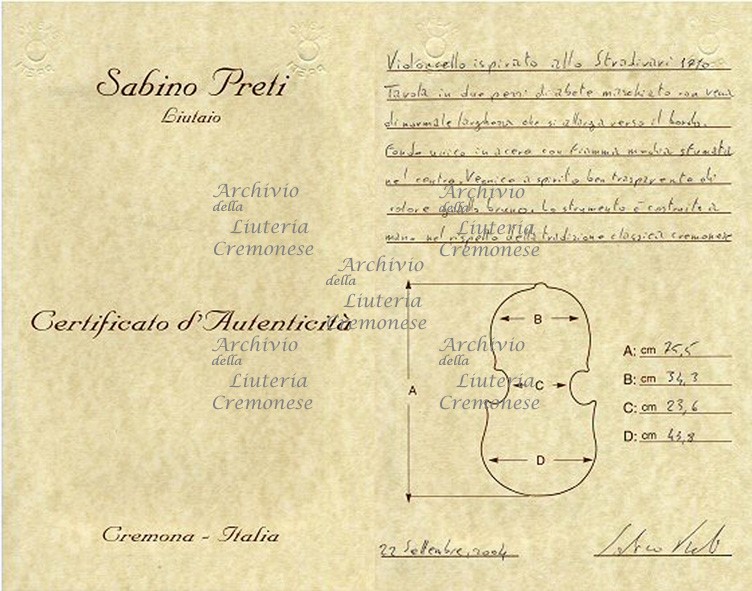 Sabino Preti
Liutaio
Certificato d'Autenticità
Cremona - Italia
Violoncello ispirato allo Stradivari 1710
Tavola in due pezzi di abete maschiato con vena
di normale larghezza che si allarga verso il bordo.
Fondo unico in acero con fiamma media sfumata
nel centro. Vernice a spirito ben trasparente di
colore giallo bruno. Lo strumento è costruito a
mano nel rispetto della tradizione classica cremonese
A
B
C
D
A: cm 75,5
B: cm 34,3
C: cm 23,6
D: cm 43,8
22 Settembre, 2004
Archivio
della
Liuteria
Cremonese
Archivio
della
Liuteria
Cremonese
Archivio
della
Liuteria
Cremonese
Archivio
della
Liuteria
Cremonese
Archivio
della
Liuteria
Cremonese